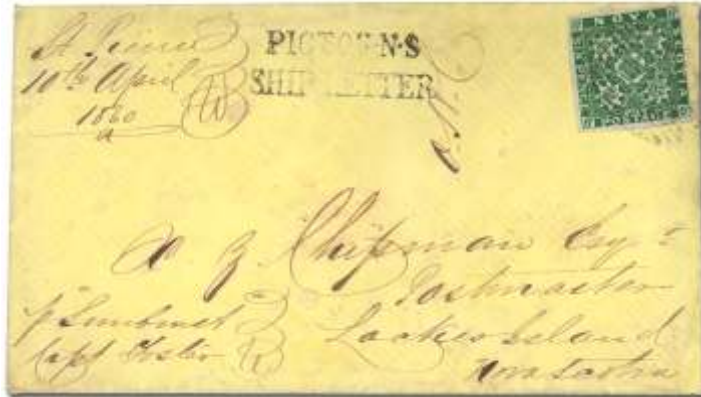 St. Pierre
10th April
1860
PICTOU N·S
SHIP LETTER
NOVA
POSTAGE
Chipman Esqr
Postmaster
Lockes Island
Nova Scotia
p
Capt Foster